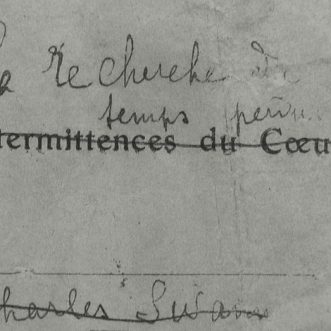 la recherche du
temps perdu
termittences du Cœu
Charles Swann